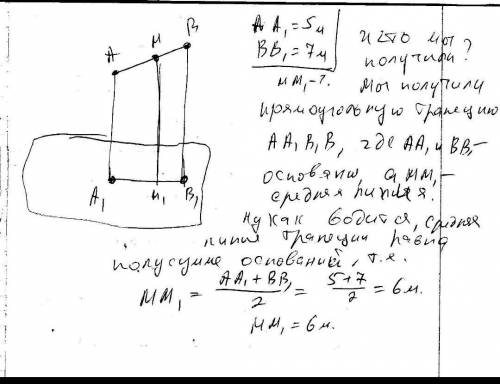 A
M
B
A₁
M₁
B₁
AA₁ = 5м
BB₁ = 7м
MM₁ - ?
И что мы
получили?
Мы получили
прямоугольную трапецию
AA₁B₁B, где AA₁ и BB₁ -
основания, а MM₁ -
средняя линия.
Ну как водится, средняя
линия трапеции равна
полусумме оснований, т.е.
MM₁ = (AA₁ + BB₁)/2 = (5+7)/2 = 6м.
MM₁ = 6м.